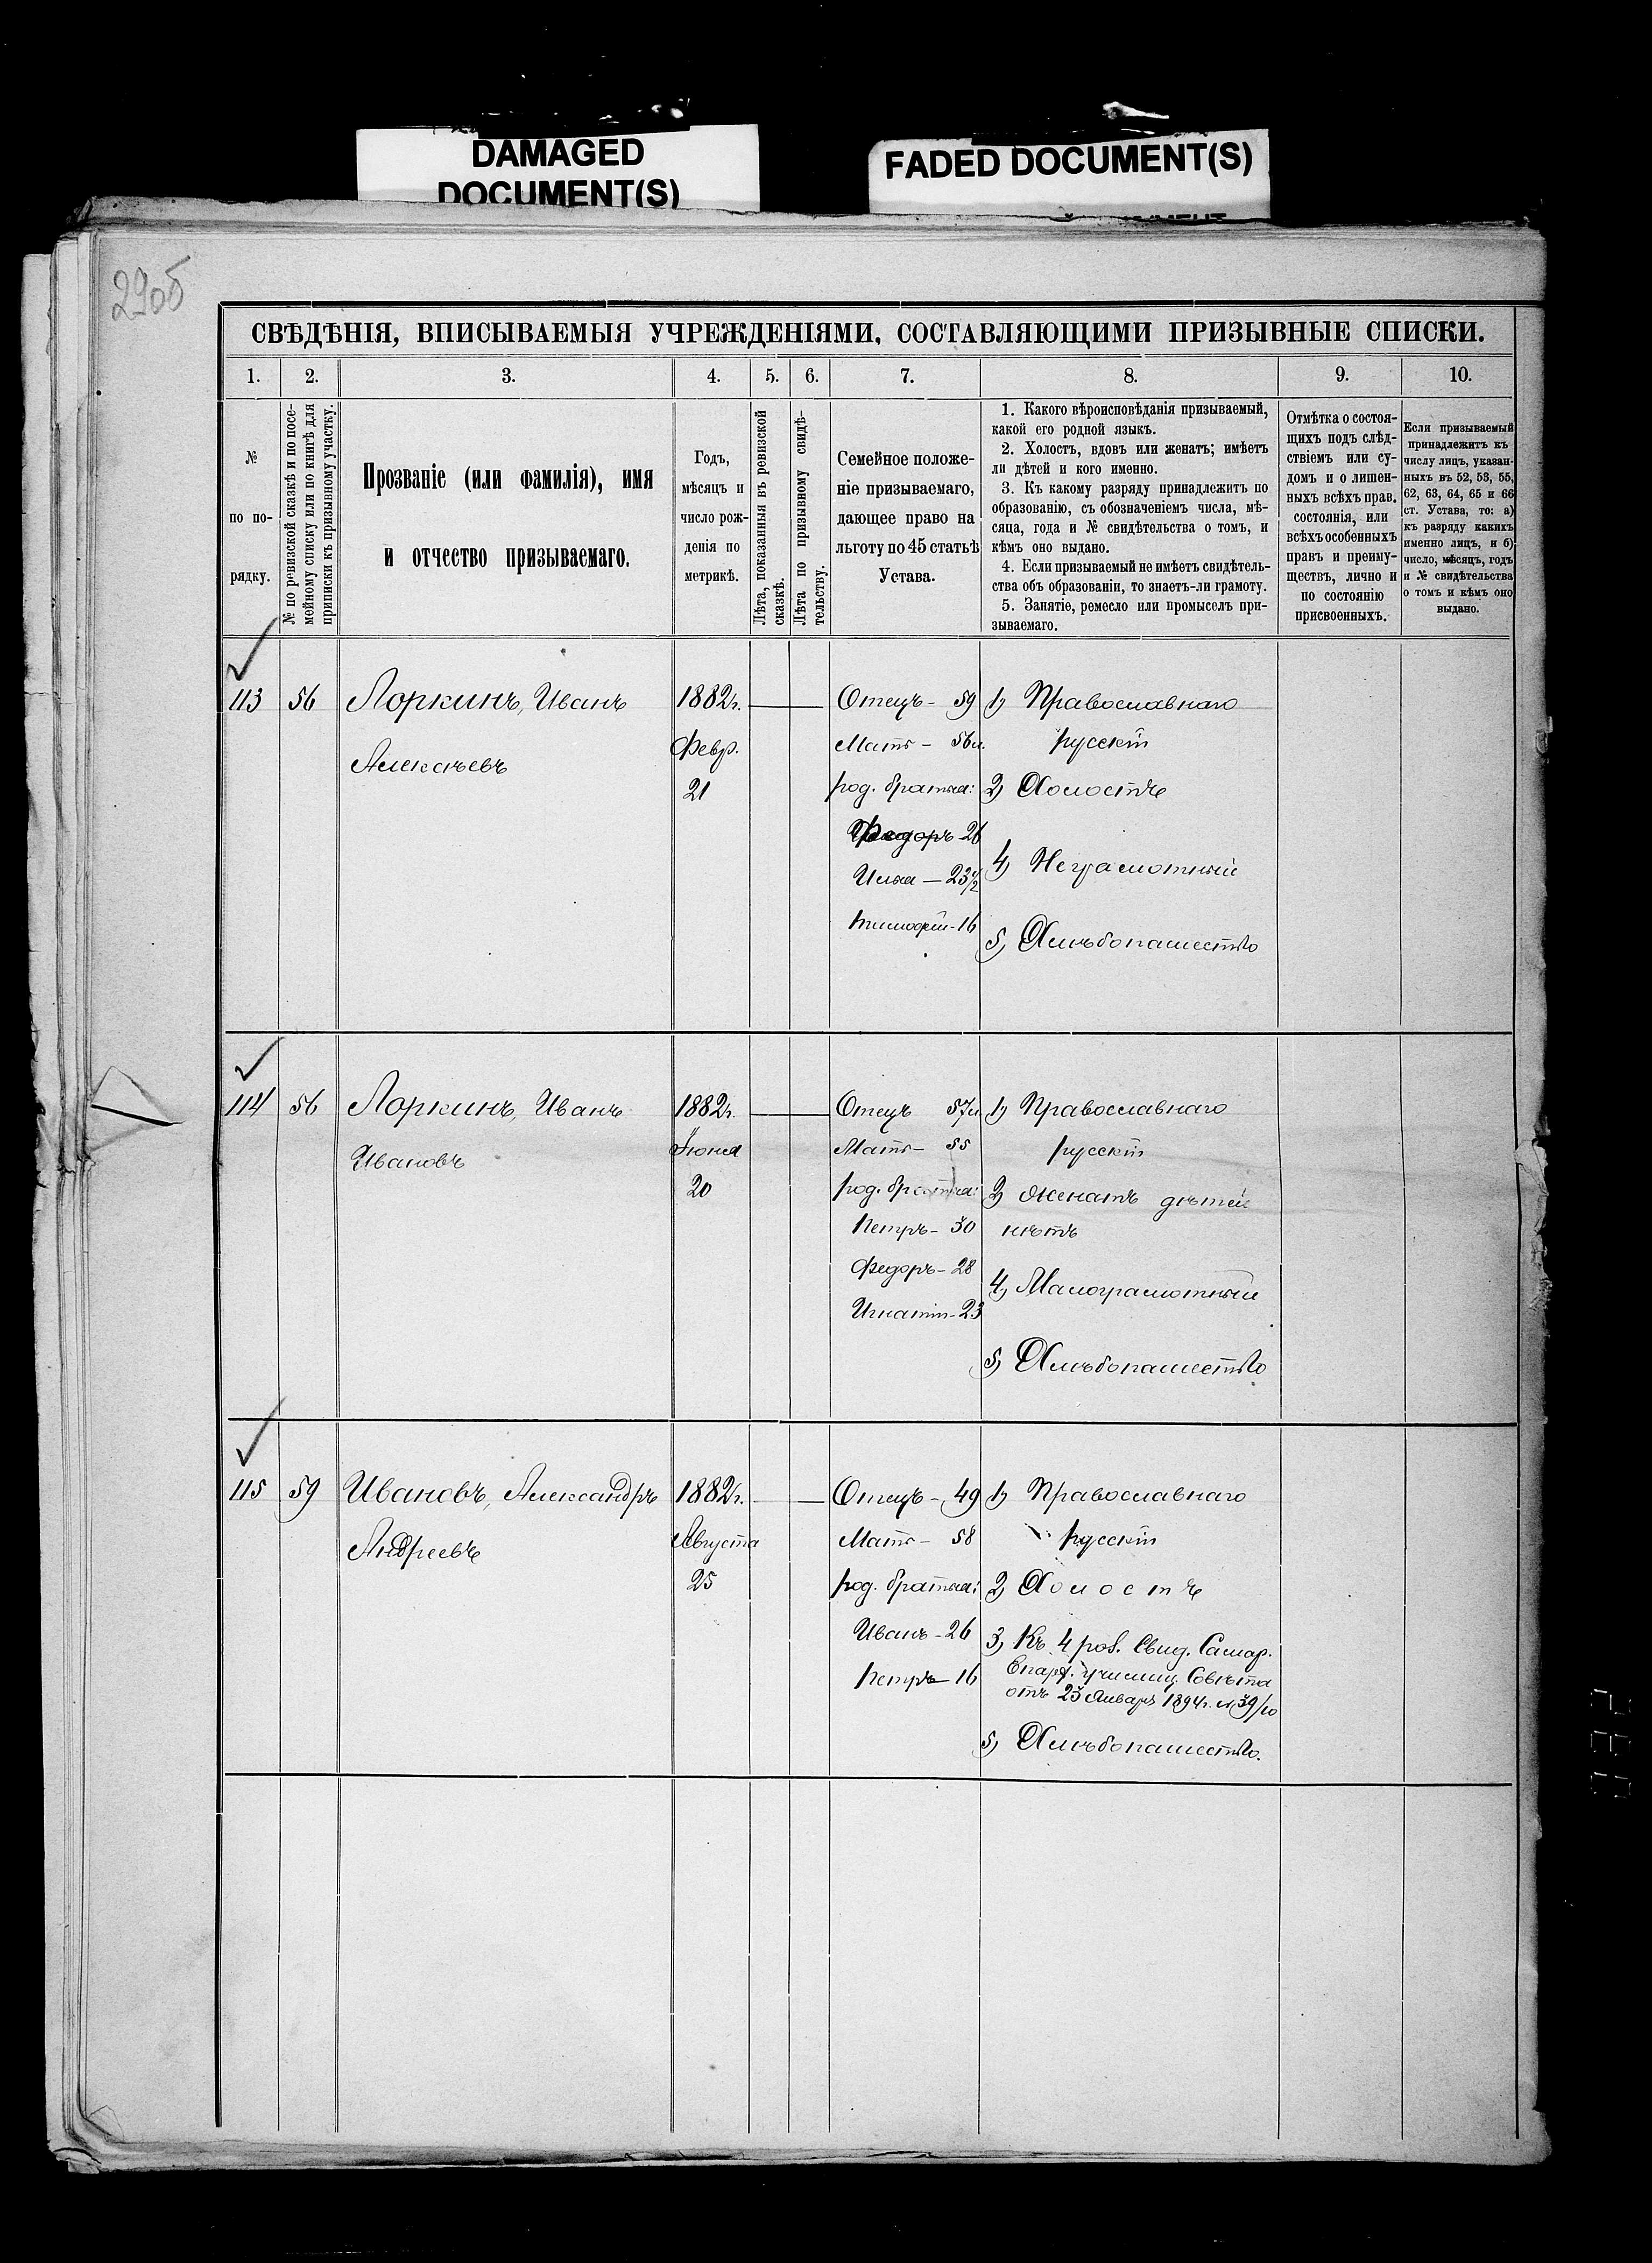 DAMAGED
DOCUMENT(S)
FADED DOCUMENT(S)
290б
СВѢДѢНІЯ, ВПИСЫВАЕМЫЯ УЧРЕЖДЕНІЯМИ, СОСТАВЛЯЮЩИМИ ПРИЗЫВНЫЕ СПИСКИ.
1. 2. 3. 4. 5. 6. 7. 8. 9. 10.
№
по по-
рядку.
№ по ревизской сказкѣ и по посе-
мейному списку или по книгѣ для
приписки къ призывному участку.
Прозваніе (или фамилія), имя
и отчество призываемаго.
Годъ,
мѣсяцъ и
число рож-
денія по
метрикѣ.
Лѣта, показанныя въ ревизской
сказкѣ.
Лѣта по призывному свидѣ-
тельству.
Семейное положе-
ніе призываемаго,
дающее право на
льготу по 45 статьѣ
Устава.
1. Какого вѣроисповѣданія призываемый,
какой его родной языкъ.
2. Холостъ, вдовъ или женатъ; имѣетъ
ли дѣтей и кого именно.
3. Къ какому разряду принадлежитъ по
образованію, съ обозначеніемъ числа, мѣ-
сяца, года и № свидѣтельства о томъ, и
кѣмъ оно выдано.
4. Если призываемый не имѣетъ свидѣтель-
ства объ образованіи, то знаетъ-ли грамоту.
5. Занятіе, ремесло или промыселъ при-
зываемаго.
Отмѣтка о состоя-
щихъ подъ слѣд-
ствіемъ или су-
домъ и о лишен-
ныхъ всѣхъ прав.
состоянія, или
всѣхъ особенныхъ
правъ и преиму-
ществъ, лично и
по состоянію
присвоенныхъ.
Если призываемый
принадлежитъ къ
числу лицъ, указан-
ныхъ въ 52, 53, 55,
62, 63, 64, 65 и 66
ст. Устава, то: а)
къ разряду какихъ
именно лицъ, и б)
число, мѣсяцъ, годъ
и № свидѣтельства
о томъ и кѣмъ оно
выдано.
113 56 Лоркинъ, Иванъ
Алексѣевъ
1882г.
Февр.
21
Отецъ - 59
Мать - 56л.
род. братья:
Федоръ - 26
Илья - 23½
Тимофей - 16
1) Православнаго
русскій
2) Холостъ
4) Неграмотный
5) Хлѣбопашество
114 56 Лоркинъ, Иванъ
Ивановъ
1882г.
Іюня
20
Отецъ 57л
Мать - 55
род. братья:
Петръ - 30
Федоръ - 28
Игнатій - 23
1) Православнаго
русскій
2) Женатъ дѣтей
нѣтъ
4) Малограмотный
5) Хлѣбопашество
115 59 Ивановъ, Александръ
Андреевъ
1882г.
Августа
25
Отецъ - 49
Мать - 58
род. братья:
Иванъ - 26
Петръ - 16
1) Православнаго
русскій
2) Холостъ
3) Къ 4 раз. Свид. Самар.
Епарх. училищ. Совѣта
отъ 23 Январ 1894г. № 39/10
5) Хлѣбопашество.